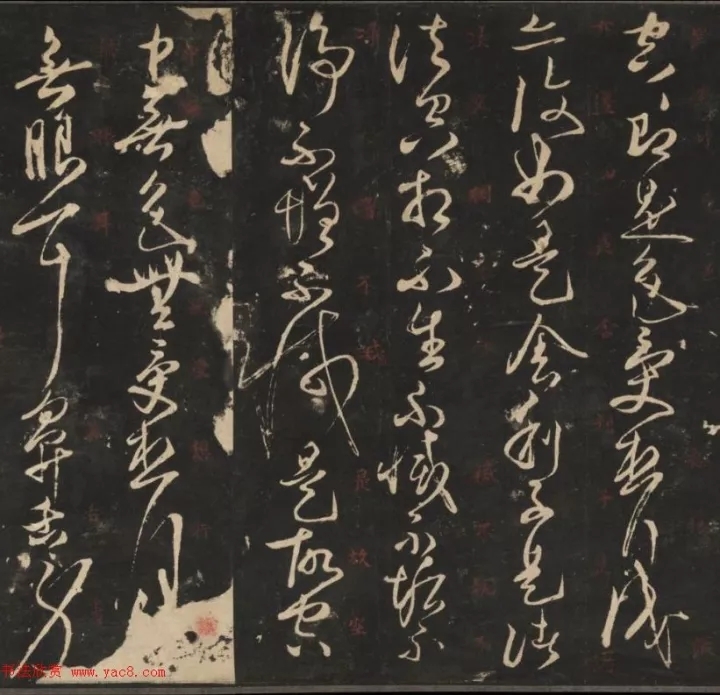 空即是色受想行識
亦復如是舍利子是諸
法空相不生不滅不垢不
淨不增不減是故空
中無色無受想行
無眼耳鼻舌身
书法欣赏 www.yac8.com